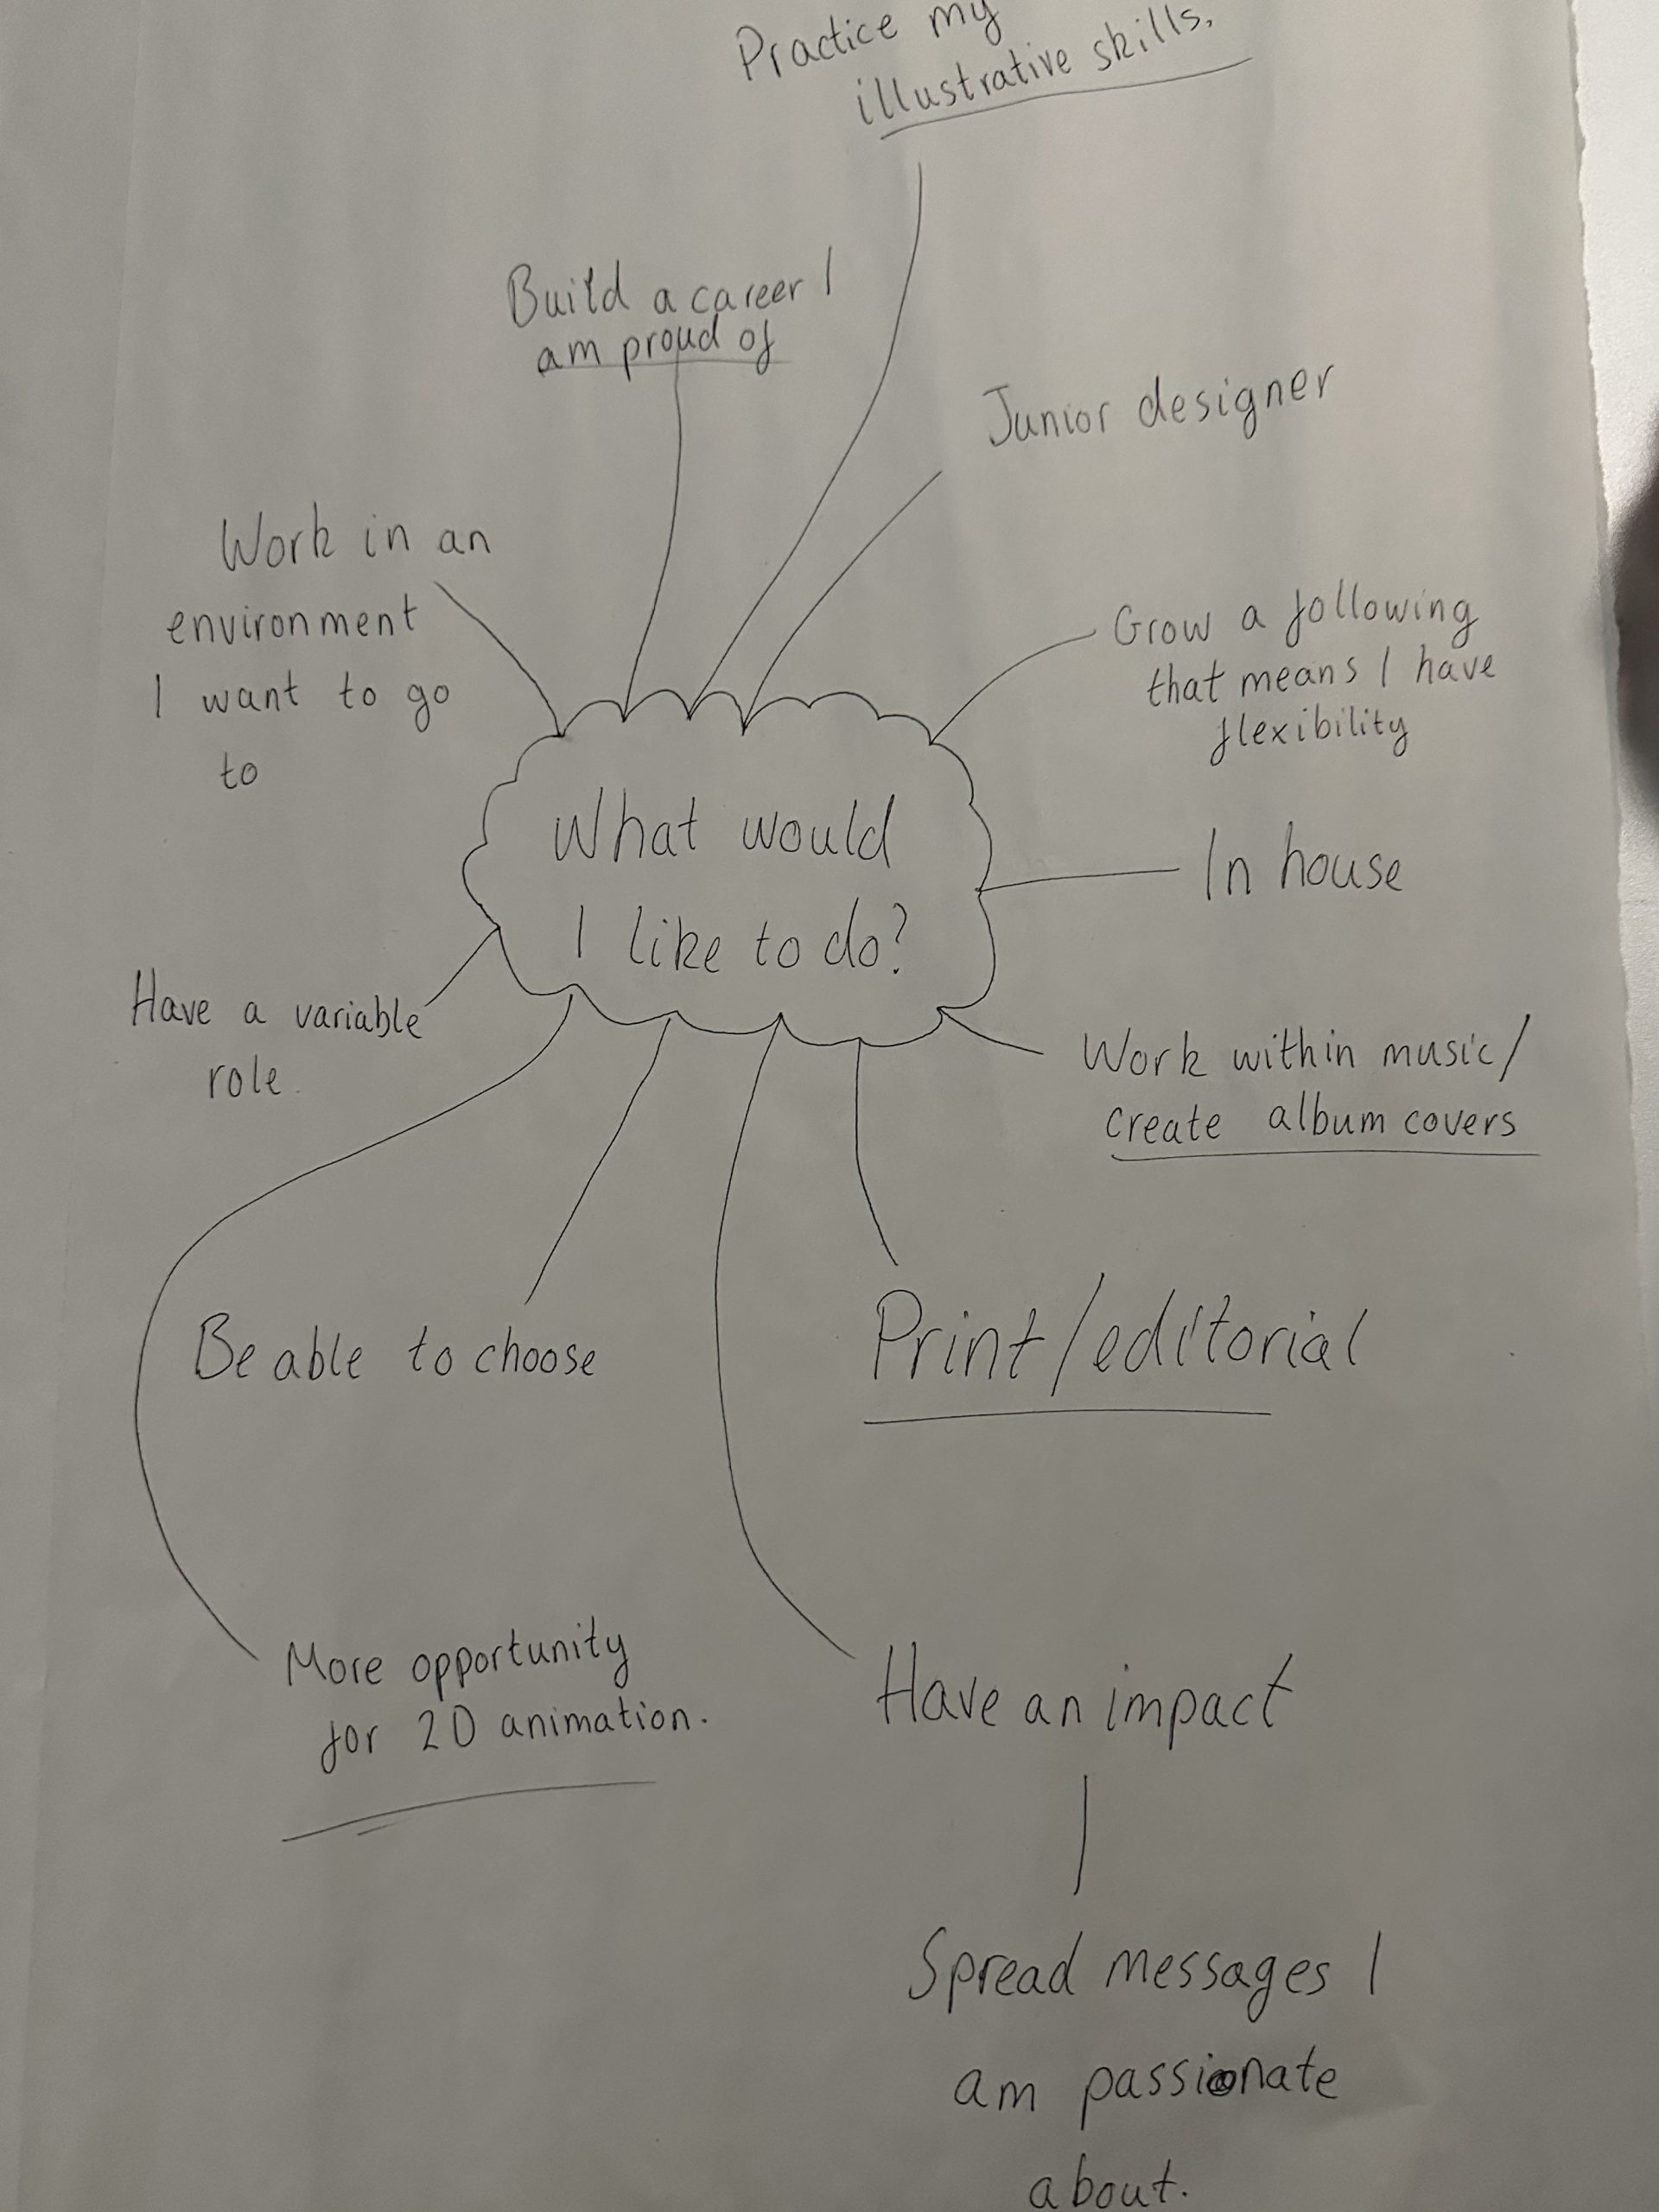 Practice my
illustrative skills.
Build a career I
am proud of
Junior designer
Work in an
environment
I want to go
to
Grow a following
that means I have
flexibility
What would
I like to do?
In house
Have a variable
role.
Work within music/
create album covers
Be able to choose
Print/editorial
More opportunity
for 2D animation.
Have an impact
Spread messages I
am passionate
about.